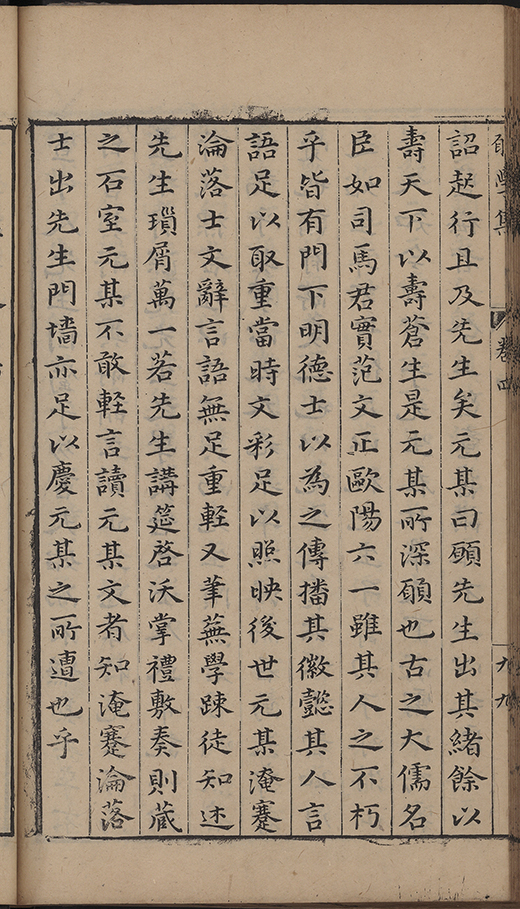 詔起行且及先生矣元某曰願先生出其緒餘以
壽天下以壽蒼生是元某所深願也古之大儒名
臣如司馬君實范文正歐陽六一雖其人之不朽
乎皆有門下明德士以為之傳播其徽懿其人言
語足以取重當時文彩足以照映後世元某淹蹇
淪落士文辭言語無足重輕又筆蕪學踈徒知述
先生瑣屑萬一若先生講筵啓沃掌禮敷奏則蔵
之石室元某不敢軽言讀元某文者知淹蹇淪落
士出先生門墻亦足以慶元某之所遭也乎
卷四
九九